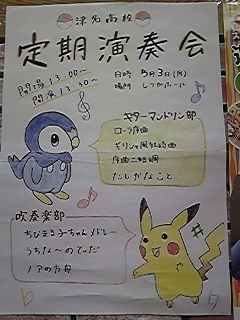 津名高校
定期演奏会
開場 13:00〜
開演 13:30〜
日時 5月3日(月)
場所 しづかホール
ギターマンドリン部
ローラ序曲
ギリシャ風狂詩曲
序曲二短調
たしかなこと
吹奏楽部
ちびまる子ちゃんメドレー
うちなーのてぃだ
ノアの方舟